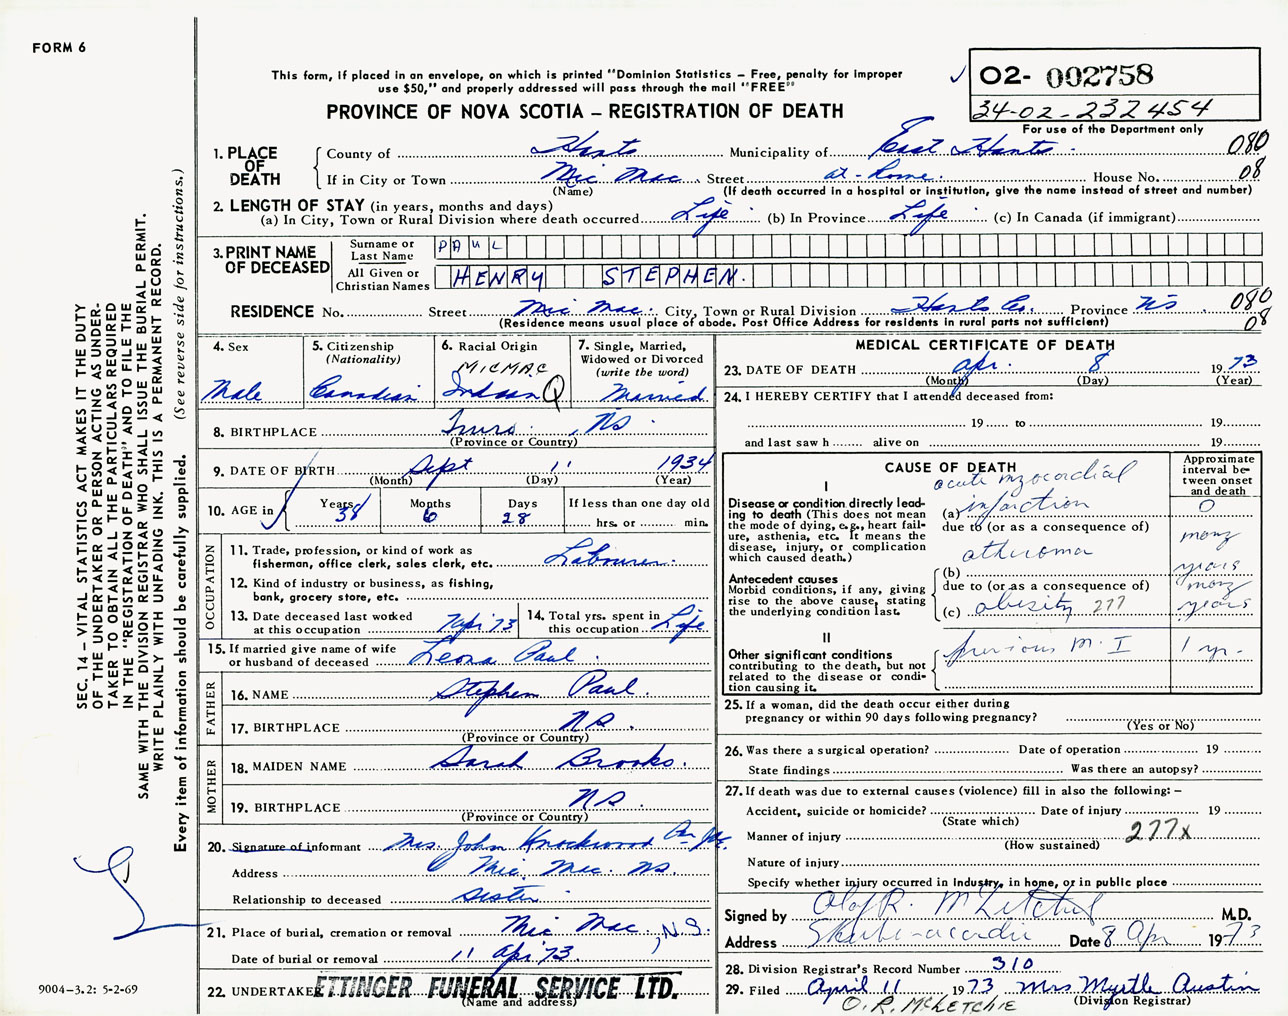 FORM 6
This form, if placed in an envelope, on which is printed "Dominion Statistics – Free, penalty for improper
use $50," and properly addressed will pass through the mail "FREE"
PROVINCE OF NOVA SCOTIA – REGISTRATION OF DEATH
02- 002758
34-02-232454
For use of the Department only
1. PLACE OF DEATH
County of Hants Municipality of East Hants 080
If in City or Town Mic Mac Street at-Home House No. 08
(Name) (If death occurred in a hospital or institution, give the name instead of street and number)
2. LENGTH OF STAY (in years, months and days)
(a) In City, Town or Rural Division where death occurred Life (b) In Province Life (c) In Canada (if immigrant)
3. PRINT NAME OF DECEASED
Surname or Last Name PAUL
All Given or Christian Names HENRY STEPHEN.
RESIDENCE No. Street Mic Mac. City, Town or Rural Division Hants Co. Province NS 080
(Residence means usual place of abode. Post Office Address for residents in rural parts not sufficient) 08
4. Sex
Male
5. Citizenship
(Nationality)
Canadian
6. Racial Origin
MICMAC
Indian
7. Single, Married,
Widowed or Divorced
(write the word)
Married
8. BIRTHPLACE Truro, NS
(Province or Country)
9. DATE OF BIRTH Sept 11 1934
(Month) (Day) (Year)
10. AGE in
Years 38
Months 6
Days 28
If less than one day old
hrs. or min.
OCCUPATION
11. Trade, profession, or kind of work as
fisherman, office clerk, sales clerk, etc. Labourer.
12. Kind of industry or business, as fishing,
bank, grocery store, etc.
13. Date deceased last worked
at this occupation Apr 73
14. Total yrs. spent in
this occupation Life
15. If married give name of wife
or husband of deceased Leona Paul.
FATHER
16. NAME Stephen Paul.
17. BIRTHPLACE NS.
(Province or Country)
MOTHER
18. MAIDEN NAME Sarah Brooks.
19. BIRTHPLACE NS
(Province or Country)
20. Signature of informant Mrs. John Knockwood
Address Mic. Mac. NS.
Relationship to deceased Sister
21. Place of burial, cremation or removal Mic Mac, N.S.
Date of burial or removal 11 Apr 73
22. UNDERTAKER ETTINGER FUNERAL SERVICE LTD.
(Name and address)
MEDICAL CERTIFICATE OF DEATH
23. DATE OF DEATH Apr. 8 1973
(Month) (Day) (Year)
24. I HEREBY CERTIFY that I attended deceased from:
19 to 19
and last saw h alive on 19
CAUSE OF DEATH
Approximate
interval be-
tween onset
and death
I
Disease or condition directly lead-
ing to death (This does not mean
the mode of dying, e.g., heart fail-
ure, asthenia, etc. It means the
disease, injury, or complication
which caused death.)
acute myocardial
(a) infarction 0
due to (or as a consequence of)
atheroma many
(b) years
Antecedent causes
Morbid conditions, if any, giving
rise to the above cause, stating
the underlying condition last.
due to (or as a consequence of) many
(c) obesity 277 years
II
Other significant conditions
contributing to the death, but not
related to the disease or condi-
tion causing it.
previous M.I 1 yr.
25. If a woman, did the death occur either during
pregnancy or within 90 days following pregnancy?
(Yes or No)
26. Was there a surgical operation? Date of operation 19
State findings Was there an autopsy?
27. If death was due to external causes (violence) fill in also the following: –
Accident, suicide or homicide? Date of injury 19
(State which)
Manner of injury 277x
(How sustained)
Nature of injury
Specify whether injury occurred in Industry, in home, or in public place
Signed by Olof R. McLetchie M.D.
Address Shubenacadie Date 8 Apr 1973
28. Division Registrar's Record Number 310
29. Filed April 11 1973 Mrs Myrtle Austin
(Division Registrar)
O.R. McLETCHIE
SEC. 14 – VITAL STATISTICS ACT MAKES IT THE DUTY
OF THE UNDERTAKER OR PERSON ACTING AS UNDER-
TAKER TO OBTAIN ALL THE PARTICULARS REQUIRED
IN THE "REGISTRATION OF DEATH" AND TO FILE THE
SAME WITH THE DIVISION REGISTRAR WHO SHALL ISSUE THE BURIAL PERMIT.
WRITE PLAINLY WITH UNFADING INK. THIS IS A PERMANENT RECORD.
Every item of information should be carefully supplied. (See reverse side for instructions.)
9004-3.2: 5-2-69